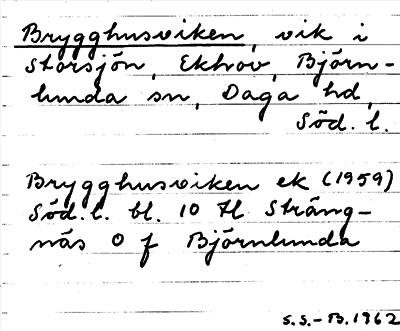 Brygghusviken, vik i
Storsjön, Ekhov, Björn-
lunda sn, Daga hd,
Söd. l.
Brygghusviken ek (1959)
Söd. l. bl. 10 Sträng-
näs O f Björnlunda
S.S.-B. 1962